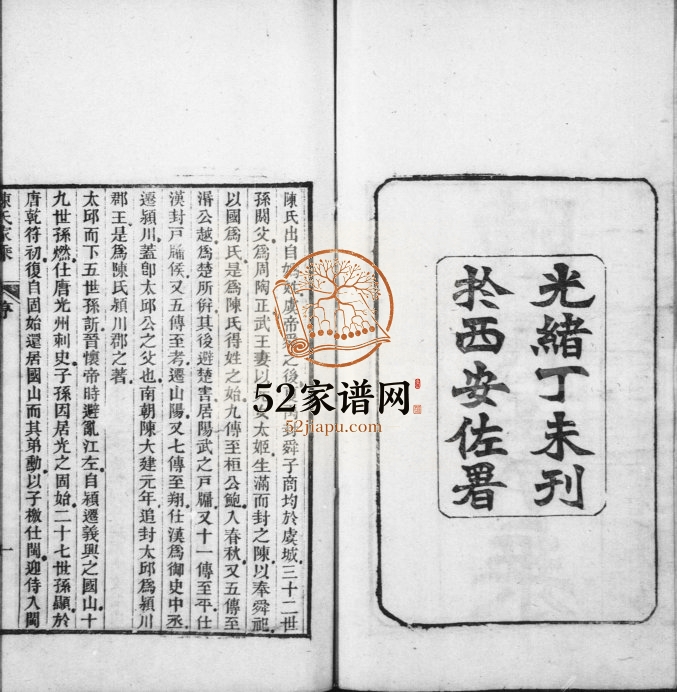 光緒丁未刊
於西安佐署
陳氏出自媯姓虞帝舜之後封舜子商均於虞城三十二世
孫閼父爲周陶正武王妻以女太姬生滿而封之陳以奉舜祀
以國爲氏是爲陳氏得姓之始九傳至桓公鮑入春秋又五傳至
湣公越爲楚所併其後避楚害居陽武之戶牖又十一傳至平仕
漢封戶牖侯又五傳至考遷山陽又七傳至翔仕漢爲御史中丞
遷潁川蓋卽太邱公之父也南朝陳大建元年追封太邱爲潁川
郡王是爲陳氏潁川郡之著
太邱而下五世孫訢晉懷帝時避亂江左自潁遷義興之國山十
九世孫燃仕唐光州刺史子孫因居光之固始二十七世孫顯於
唐乾符初復自固始還居國山而其弟動以子檄仕閩迎侍入閩
陳氏家乘
序
一
52家谱网
52jiapu.com